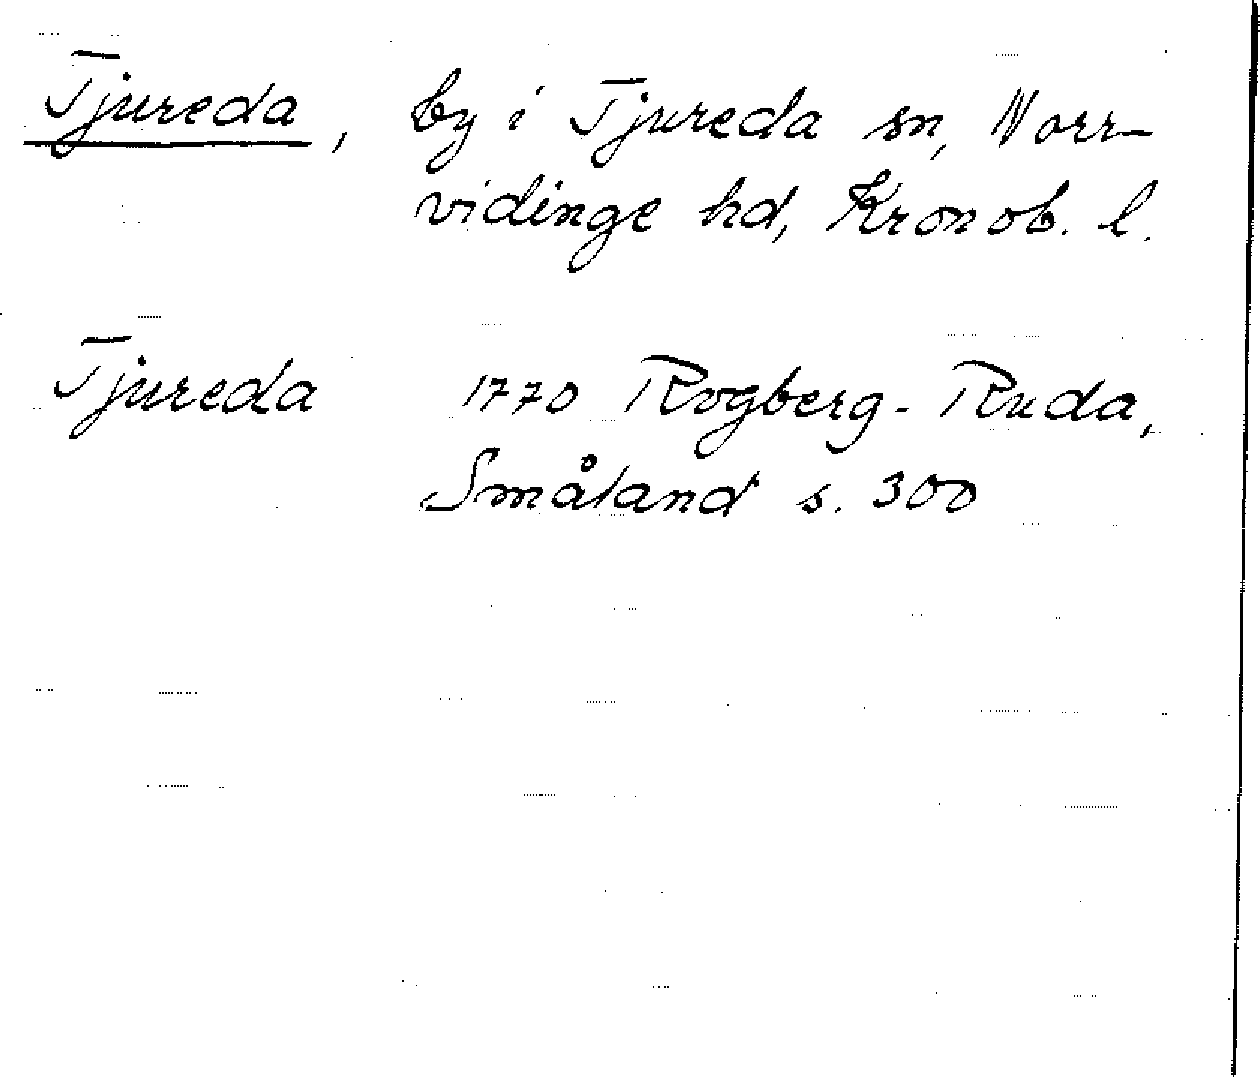 Tjureda, by i Tjureda sn, Norr-
vidinge hd, Kronob. l.
Tjureda 1770 Rogberg-Ruda,
Småland s. 300